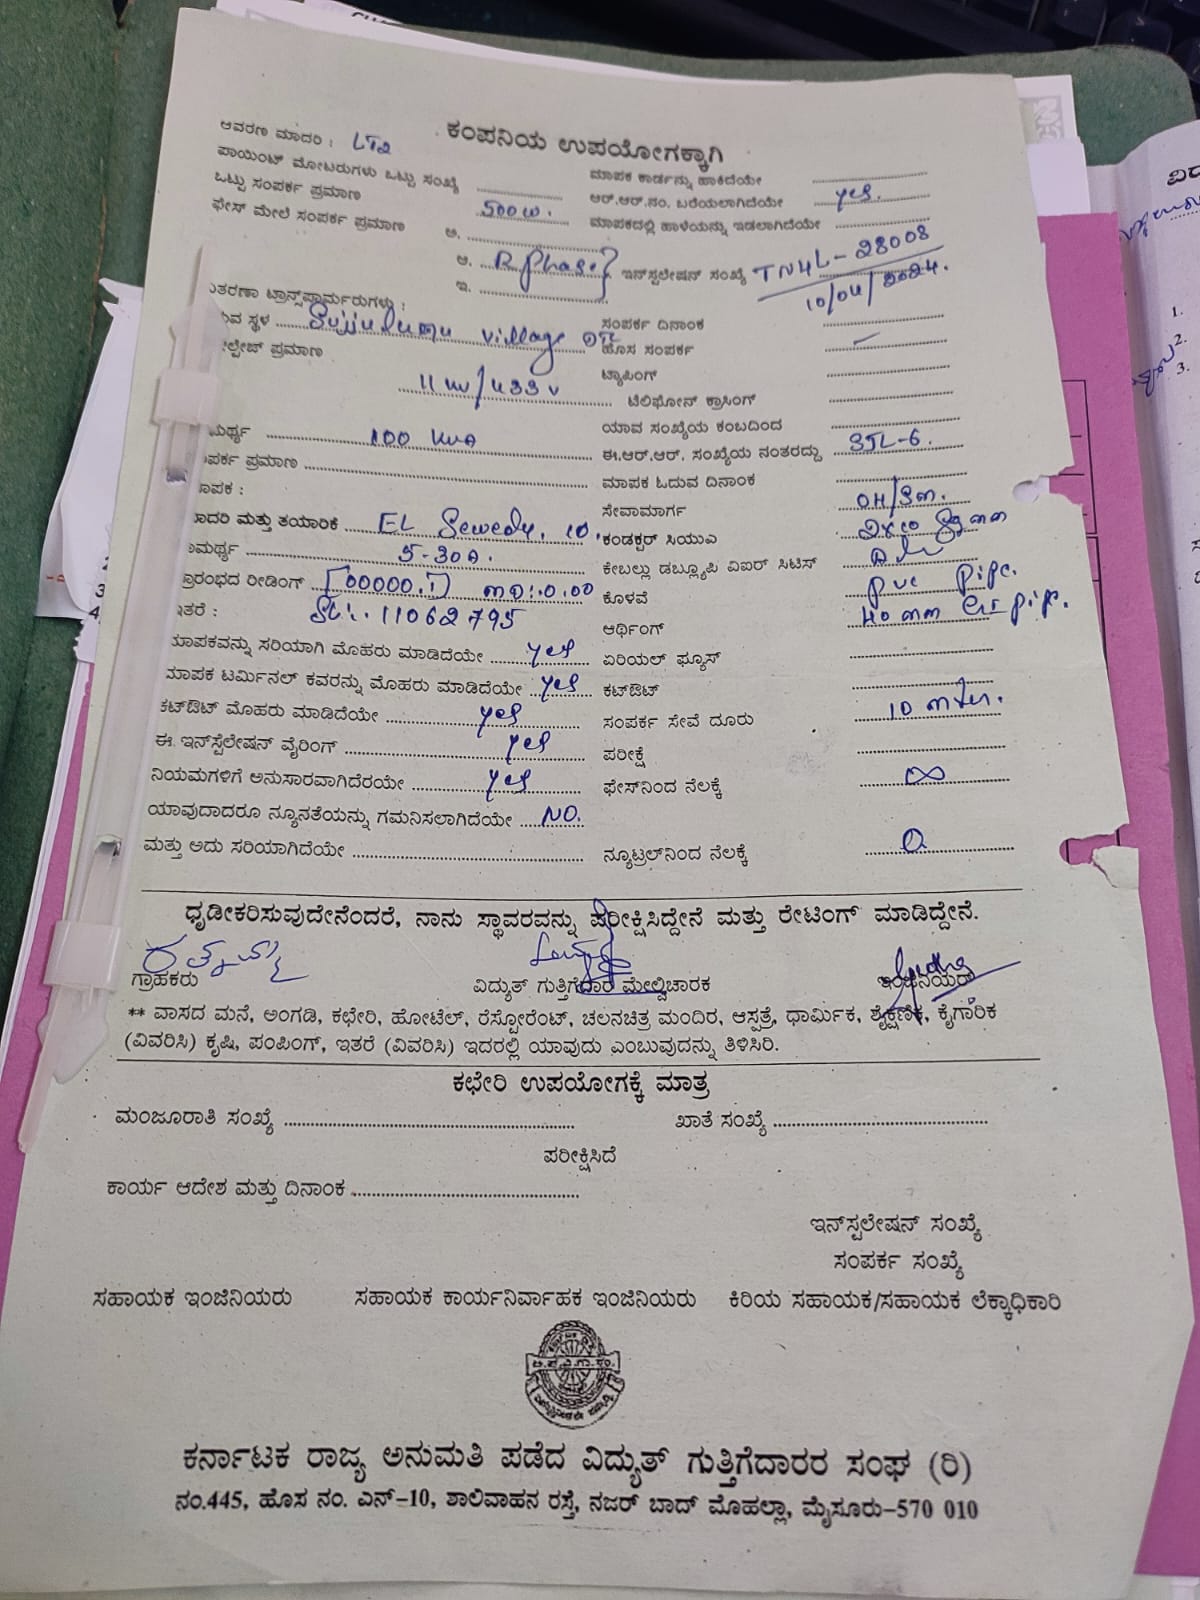 ಕಂಪನಿಯ ಉಪಯೋಗಕ್ಕಾಗಿ
ಆವರಣ ಮಾದರಿ : LT2
ಪಾಯಿಂಟ್ ಮೋಟರುಗಳು ಒಟ್ಟು ಸಂಖ್ಯೆ
ಮಾಪಕ ಕಾರ್ಡನ್ನು ಹಾಕಿದೆಯೇ
ಒಟ್ಟು ಸಂಪರ್ಕ ಪ್ರಮಾಣ 500 W.
ಆರ್.ಆರ್.ನಂ. ಬರೆಯಲಾಗಿದೆಯೇ yes.
ಫೇಸ್ ಮೇಲೆ ಸಂಪರ್ಕ ಪ್ರಮಾಣ ಅ.
ಮಾಪಕದಲ್ಲಿ ಹಾಳೆಯನ್ನು ಇಡಲಾಗಿದೆಯೇ
ಆ. R phase
ಇನ್‌ಸ್ಟಲೇಷನ್ ಸಂಖ್ಯೆ TN4L-28008
ಇ.
10/04/2024.
ತರಣಾ ಟ್ರಾನ್ಸ್‌ಫಾರ್ಮರುಗಳು :
ಸಂಪರ್ಕ ದಿನಾಂಕ
ವ ಸ್ಥಳ village
ಹೊಸ ಸಂಪರ್ಕ
ಲ್ಟೇಜ್ ಪ್ರಮಾಣ
ಟ್ಯಾಪಿಂಗ್
11 /433 V
ಟೆಲಿಫೋನ್ ಕ್ರಾಸಿಂಗ್
ಮರ್ಥ್ಯ 100 KVA
ಯಾವ ಸಂಖ್ಯೆಯ ಕಂಬದಿಂದ
ಪರ್ಕ ಪ್ರಮಾಣ
ಈ.ಆರ್.ಆರ್. ಸಂಖ್ಯೆಯ ನಂತರದ್ದು SJL-6.
ಾಪಕ :
ಮಾಪಕ ಓದುವ ದಿನಾಂಕ
ಾದರಿ ಮತ್ತು ತಯಾರಿಕೆ EL Sewedy. 10.
ಸೇವಾಮಾರ್ಗ OH/
ಾಮರ್ಥ್ಯ 5-30A.
ಕಂಡಕ್ಟರ್ ಸಿಯುವಿ 2x10
ಪ್ರಾರಂಭದ ರೀಡಿಂಗ್ [00000.1] MD:0.00
ಕೇಬಲ್ಲು ಡಬ್ಲ್ಯೂಪಿ ವಿಐಆರ್ ಸಿಟಿಸ್
ಇತರೆ : Sl:. 11062795
ಕೊಳವೆ PVC pipe.
ಆರ್ಥಿಂಗ್ 40 mm GI pipe.
ಮಾಪಕವನ್ನು ಸರಿಯಾಗಿ ಮೊಹರು ಮಾಡಿದೆಯೇ yes
ಏರಿಯಲ್ ಫ್ಯೂಸ್
ಮಾಪಕ ಟರ್ಮಿನಲ್ ಕವರನ್ನು ಮೊಹರು ಮಾಡಿದೆಯೇ yes
ಕಟ್‌ಔಟ್
ಕಟ್‌ಔಟ್ ಮೊಹರು ಮಾಡಿದೆಯೇ yes
ಸಂಪರ್ಕ ಸೇವೆ ದೂರು 10 mter.
ಈ ಇನ್‌ಸ್ಟಲೇಷನ್ ವೈರಿಂಗ್ yes
ಪರೀಕ್ಷೆ
ನಿಯಮಗಳಿಗೆ ಅನುಸಾರವಾಗಿದೆರಯೇ yes
ಫೇಸ್‌ನಿಂದ ನೆಲಕ್ಕೆ ∞
ಯಾವುದಾದರೂ ನ್ಯೂನತೆಯನ್ನು ಗಮನಿಸಲಾಗಿದೆಯೇ NO.
ಮತ್ತು ಅದು ಸರಿಯಾಗಿದೆಯೇ
ನ್ಯೂಟ್ರಲ್‌ನಿಂದ ನೆಲಕ್ಕೆ 0
ಧೃಡೀಕರಿಸುವುದೇನೆಂದರೆ, ನಾನು ಸ್ಥಾವರವನ್ನು ಪರೀಕ್ಷಿಸಿದ್ದೇನೆ ಮತ್ತು ರೇಟಿಂಗ್ ಮಾಡಿದ್ದೇನೆ.
ಗ್ರಾಹಕರು ವಿದ್ಯುತ್ ಗುತ್ತಿಗೆದಾರ ಮೇಲ್ವಿಚಾರಕ ಇಂಜಿನಿಯರ್
** ವಾಸದ ಮನೆ, ಅಂಗಡಿ, ಕಛೇರಿ, ಹೋಟೆಲ್, ರೆಸ್ಟೋರೆಂಟ್, ಚಲನಚಿತ್ರ ಮಂದಿರ, ಆಸ್ಪತ್ರೆ, ಧಾರ್ಮಿಕ, ಶೈಕ್ಷಣಿಕ, ಕೈಗಾರಿಕ
(ವಿವರಿಸಿ) ಕೃಷಿ, ಪಂಪಿಂಗ್, ಇತರೆ (ವಿವರಿಸಿ) ಇದರಲ್ಲಿ ಯಾವುದು ಎಂಬುವುದನ್ನು ತಿಳಿಸಿರಿ.
ಕಛೇರಿ ಉಪಯೋಗಕ್ಕೆ ಮಾತ್ರ
ಮಂಜೂರಾತಿ ಸಂಖ್ಯೆ ಖಾತೆ ಸಂಖ್ಯೆ
ಪರೀಕ್ಷಿಸಿದೆ
ಕಾರ್ಯ ಆದೇಶ ಮತ್ತು ದಿನಾಂಕ
ಇನ್‌ಸ್ಟಲೇಷನ್ ಸಂಖ್ಯೆ
ಸಂಪರ್ಕ ಸಂಖ್ಯೆ
ಸಹಾಯಕ ಇಂಜಿನಿಯರು ಸಹಾಯಕ ಕಾರ್ಯನಿರ್ವಾಹಕ ಇಂಜಿನಿಯರು ಕಿರಿಯ ಸಹಾಯಕ/ಸಹಾಯಕ ಲೆಕ್ಕಾಧಿಕಾರಿ
ಕರ್ನಾಟಕ ರಾಜ್ಯ ಅನುಮತಿ ಪಡೆದ ವಿದ್ಯುತ್ ಗುತ್ತಿಗೆದಾರರ ಸಂಘ (ರಿ)
ನಂ.445, ಹೊಸ ನಂ. ಎನ್-10, ಶಾಲಿವಾಹನ ರಸ್ತೆ, ನಜರ್ ಬಾದ್ ಮೊಹಲ್ಲಾ, ಮೈಸೂರು-570 010